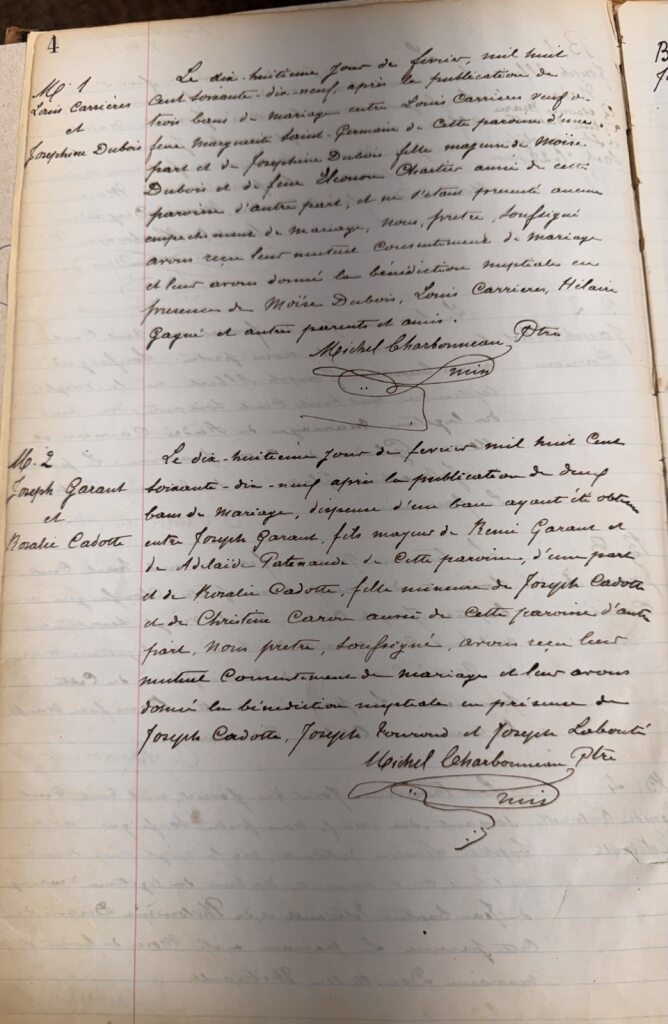 4
M. 1
Louis Carrières
et
Josephine Dubois
Le dix-huitieme jour de fevrier, mil huit
cent soixante-dix-neuf, après la publication de
trois bans de mariage entre Louis Carrieres veuf de
feue Marguerite Saint-Germain de cette paroisse d'une
part et de Josephine Dubois fille majeure de Moïse
Dubois et de feue Eleonore Chartier aussi de cette
paroisse d'autre part, et ne s'etant presenté aucun
empechement de mariage, nous, pretre, soussigné
avons reçu leur mutuel consentement de mariage
et leur avons donné la bénédiction nuptiale en
presence de Moïse Dubois, Louis Carrieres, Hilaire
Gagné et autres parents et amis.
Michel Charbonneau Ptre
M. 2
Joseph Garant
et
Rosalie Cadotte
Le dix-huitieme jour de fevrier mil huit cent
soixante-dix-neuf après la publication de deux
bans de mariage, dispense d'un ban ayant été obtenu
entre Joseph Garant, fils majeur de Remi Garant et
de Adelaïde Patenaude de cette paroisse, d'une part
et de Rosalie Cadotte, fille mineure de Joseph Cadotte
et de Christine Caron aussi de cette paroisse d'autre
part, nous pretre, soussigné, avons reçu leur
mutuel consentement de mariage et leur avons
donné la bénédiction nuptiale en présence de
Joseph Cadotte, Joseph et Joseph Labonté
Michel Charbonneau Ptre